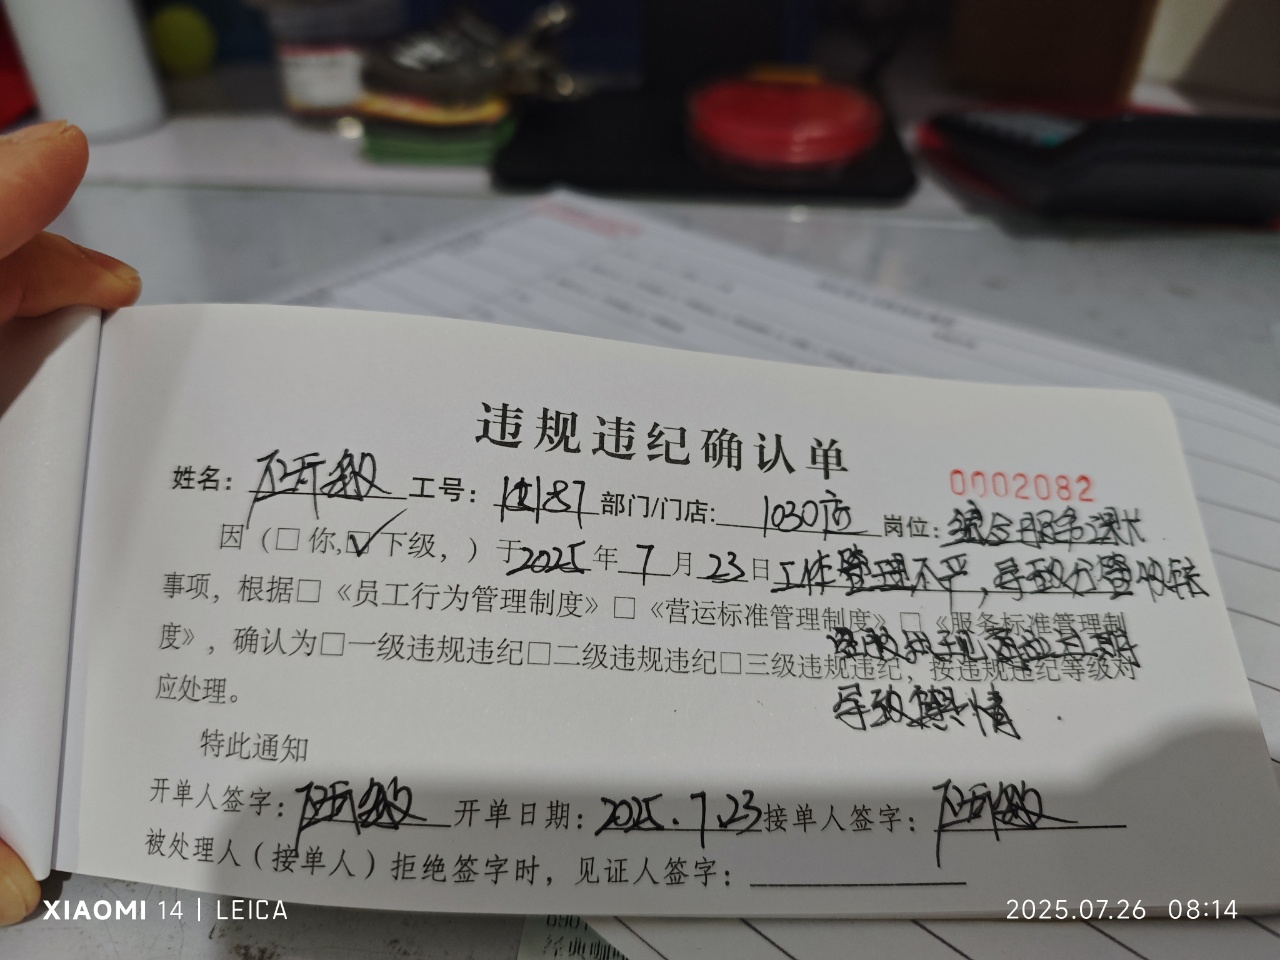 违规违纪确认单
0002082
姓名： 工号： 187 部门/门店: 1030店 岗位: 综合服务课长
因（□你,☑下级，）于2025年7月23日工作管理不严，导致分管收银
事项，根据□《员工行为管理制度》□《营运标准管理制度》□《服务标准管理制
度》，确认为□一级违规违纪□二级违规违纪□三级违规违纪，按违规违纪等级对
导致舆情
应处理。
特此通知
开单人签字: 开单日期: 2025.7.23 接单人签字:
被处理人（接单人）拒绝签字时，见证人签字:
XIAOMI 14 | LEICA
2025.07.26 08:14